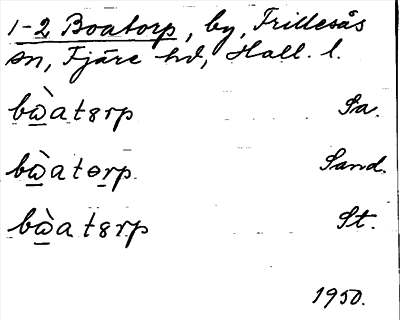 1-2 Boatorp, by, Frillesås
sn, Fjäre hd, Hall. l.
bὼ̱atɵrp Sa.
bὼ̱atɵṟp Sand.
bὼ̱atɵrp St.
1950.